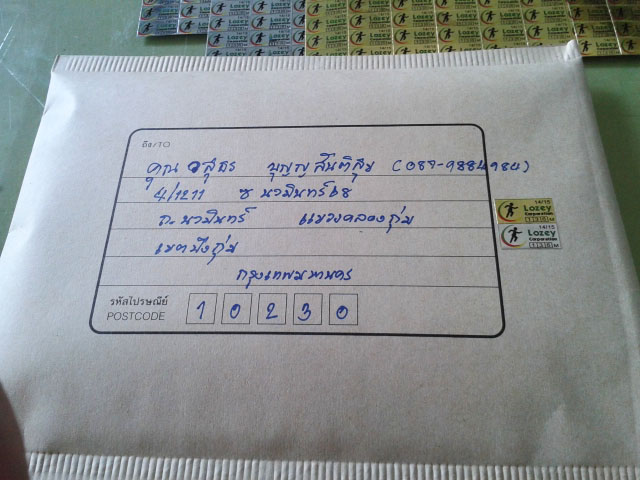 ถึง/TO
คุณ วสุธร บุญญสันติสุข (089-9884984)
4/1211 ซ นวมินทร์ 68
ถ. นวมินทร์ แขวงคลองกุ่ม
เขตบึงกุ่ม
กรุงเทพมหานคร
รหัสไปรษณีย์
POSTCODE
10230
14/15
Lozey
Corporation
14/15
Lozey
Corporation